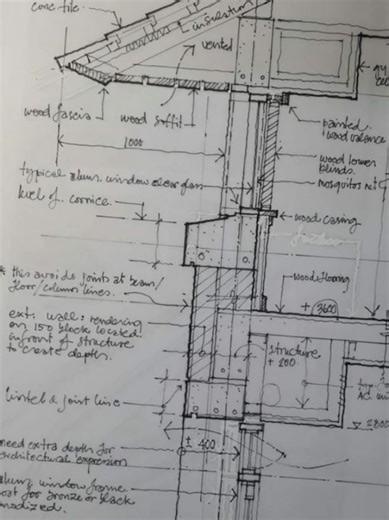 conc tile
insulation
vented
wood fascia
wood soffit
painted
wood valance
1000
wood louver
blinds.
typical alum. window clear glass
mosquitos net
level of cornice.
wood casing
* this avoids joints at beam/
floor/column lines.
wood flooring
+ 3600
ext. wall: rendering
on 150 block located
infront of structure
to create depth.
structure
+ 200
AC.
lintel & joint line
2800
± 400
need extra depth for
architectural expression
alum. window frame
coat for bronze or black
anodized.